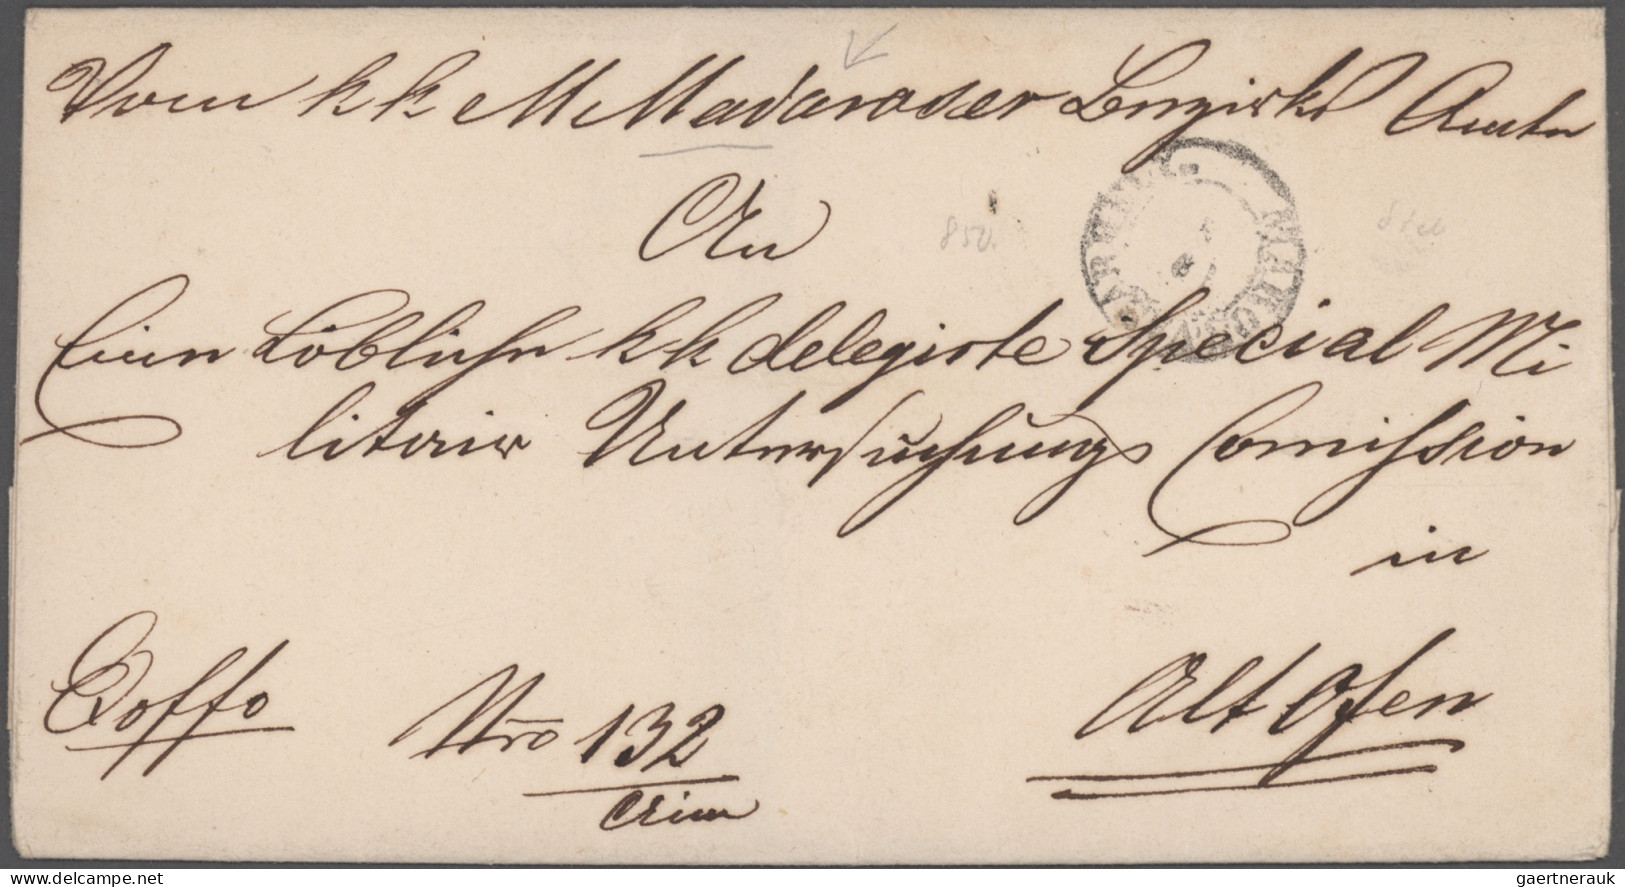 Vom k k M Madaraser Bezirks Amte
An
Eine Löbliche k k delegirte Special Mi
litair Untersuchungs Comission
in
Alt Ofen
Exoffo
Nro 132
Crim
850.
MAROS
gaertnerauk